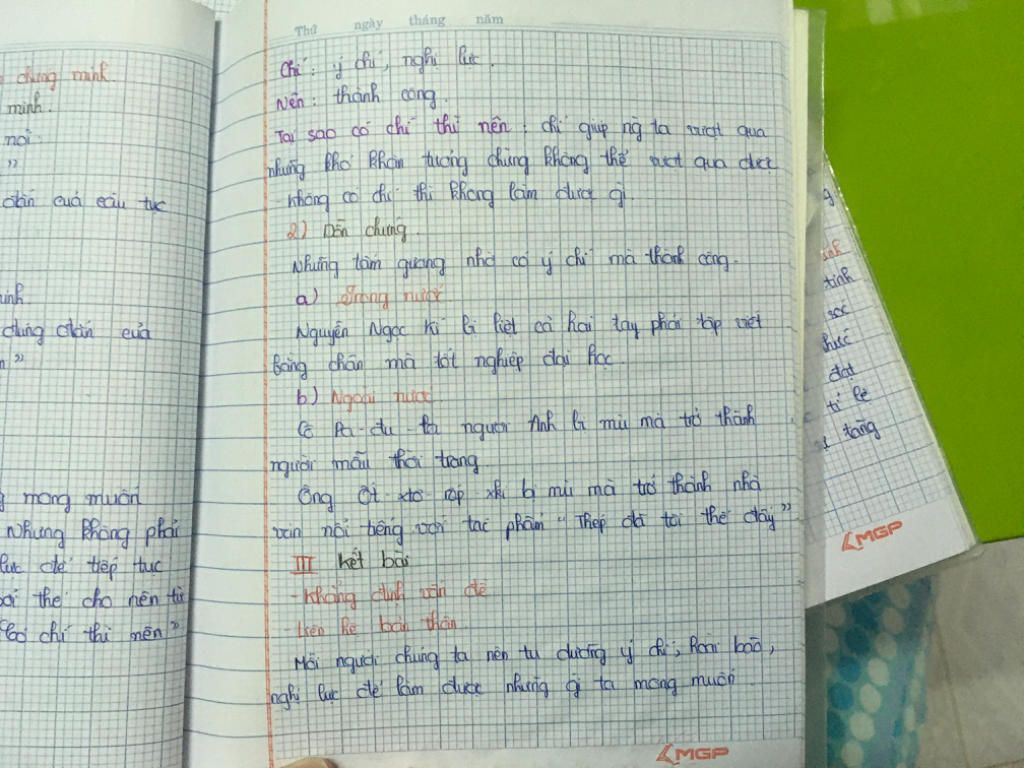 chứng minh.
minh.
nói:
"
đắn của câu tục
minh.
đúng đắn của
n"
mong muốn
Nhưng không phải
lực để tiếp tục
thế cho nên từ
"Có chí thì nên"
Thứ ngày tháng năm
Chí: ý chí, nghị lực.
Nên: thành công.
Tại sao có chí thì nên: chí giúp ng ta vượt qua
những khó khăn tưởng chừng không thể vượt qua được
- Không có chí thì không làm được gì.
2) Dẫn chứng.
Những tấm gương nhờ có ý chí mà thành công.
a) Trong nước
Nguyễn Ngọc Kí bị liệt cả hai tay phải tập viết
bằng chân mà tốt nghiệp đại học.
b) Ngoài nước
Cô Pa-đu-la người Anh bị mù mà trở thành
người mẫu thời trang.
Ông Ốt-xtơ-rốp-xki bị mù mà trở thành nhà
văn nổi tiếng với tác phẩm "Thép đã tôi thế đấy"
III Kết bài
- Khẳng định vấn đề
- Liên hệ bản thân.
Mỗi người chúng ta nên tu dưỡng ý chí, hoài bão,
nghị lực để làm được những gì ta mong muốn.
MGP
tính
sóc
thức
đạt
tỉ lệ
tăng
MGP